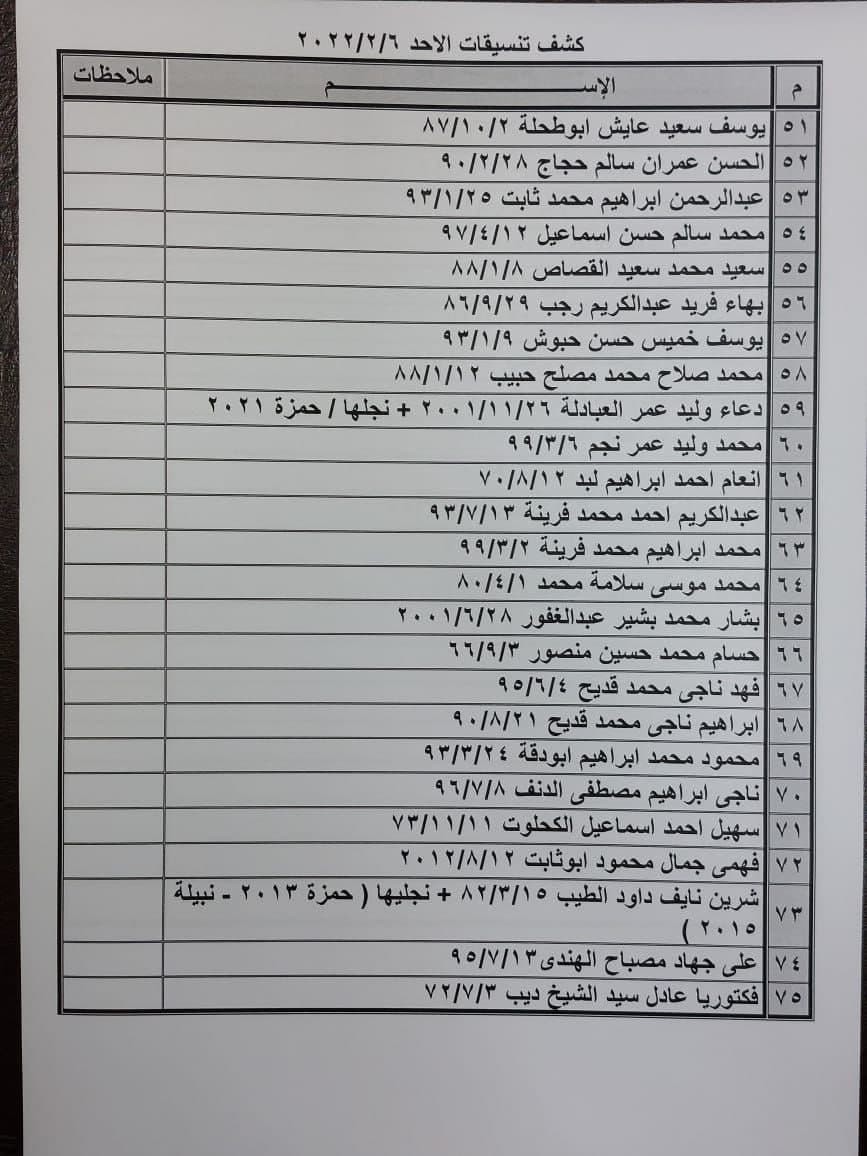 كشف تنسيقات الاحد ٢٠٢٢/٢/٦
م الإســـــــــــــــــم ملاحظات
٥١ يوسف سعيد عايش ابوطحلة ٨٧/١٠/٢
٥٢ الحسن عمران سالم حجاج ٩٠/٢/٢٨
٥٣ عبدالرحمن ابراهيم محمد ثابت ٩٣/١/٢٥
٥٤ محمد سالم حسن اسماعيل ٩٧/٤/١٢
٥٥ سعيد محمد سعيد القصاص ٨٨/١/٨
٥٦ بهاء فريد عبدالكريم رجب ٨٦/٩/٢٩
٥٧ يوسف خميس حسن حبوش ٩٣/١/٩
٥٨ محمد صلاح محمد مصلح حبيب ٨٨/١/١٢
٥٩ دعاء وليد عمر العبادلة ٢٠٠١/١١/٢٦ + نجلها / حمزة ٢٠٢١
٦٠ محمد وليد عمر نجم ٩٩/٣/٦
٦١ انعام احمد ابراهيم لبد ٧٠/٨/١٢
٦٢ عبدالكريم احمد محمد فرينة ٩٣/٧/١٣
٦٣ محمد ابراهيم محمد فرينة ٩٩/٣/٢
٦٤ محمد موسى سلامة محمد ٨٠/٤/١
٦٥ بشار محمد بشير عبدالغفور ٢٠٠١/٦/٢٨
٦٦ حسام محمد حسين منصور ٦٦/٩/٣
٦٧ فهد ناجى محمد قديح ٩٥/٦/٤
٦٨ ابراهيم ناجى محمد قديح ٩٠/٨/٢١
٦٩ محمود محمد ابراهيم ابودقة ٩٣/٣/٢٤
٧٠ ناجى ابراهيم مصطفى الدنف ٩٦/٧/٨
٧١ سهيل احمد اسماعيل الكحلوت ٧٣/١١/١١
٧٢ فهمى جمال محمود ابوثابت ٢٠١٢/٨/١٢
٧٣ شرين نايف داود الطيب ٨٢/٣/١٥ + نجليها ( حمزة ٢٠١٣ - نبيلة
٢٠١٥ )
٧٤ على جهاد مصباح الهندى ٩٥/٧/١٣
٧٥ فكتوريا عادل سيد الشيخ ديب ٧٢/٧/٣